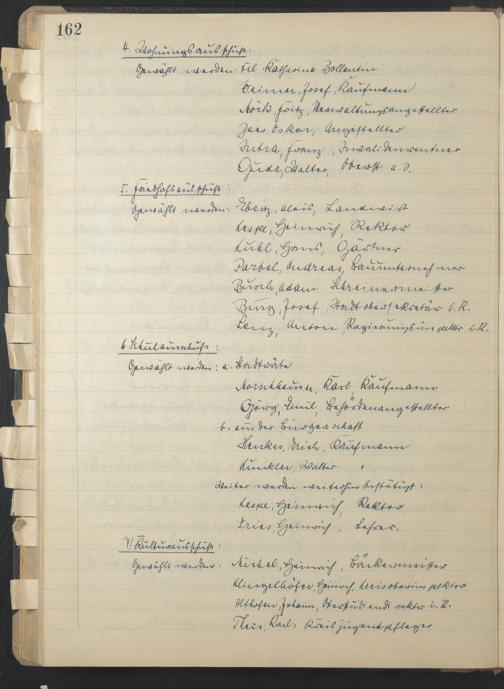 162
4. Wohnungsausschuß:
Gewählt werden: Frl. Katharina Bollentin
Josef, Kaufmann
Fritz, Verwaltungsangestellter
Oskar, Angestellter
Franz, Invalidenrentner
Walter, Oberst a.D.
5. Friedhofsausschuß:
Gewählt werden: Alois, Landwirt
Lespe, Heinrich, Rektor
Hans, Gärtner
Andreas, Bauunternehmer
Busch, Adam Schreinermeister
Burg, Josef, Stadtobersekretär i.R.
Lenz, Anton Regierungsinspektor i.R.
6. Schulausschuß:
Gewählt werden: a. Stadträte
Karl, Kaufmann
Emil, Behördenangestellter
b. aus der Bürgerschaft
Henkes, Erich, Kaufmann
Kunkler, Walter "
Weiter werden weiterhin bestätigt:
Lespe, Heinrich, Rektor
Dries Heinrich, Lehrer.
7) Kulturausschuß:
Gewählt werden: Nickel, Heinrich, Bäckermeister
Klingelhöfer, Heinrich, Kreisoberinspektor
Althofen, Johann, Oberstudiendirektor i.R.
Theis, Karl, Kreisjugendpfleger